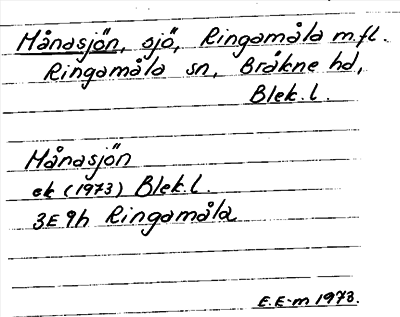 Hånasjön, sjö, Ringamåla m.fl.
Ringamåla sn, Bräkne hd,
Blek. l.
Hånasjön
ek (1973) Blek. l.
3E 9h Ringamåla
E.E-m 1973.